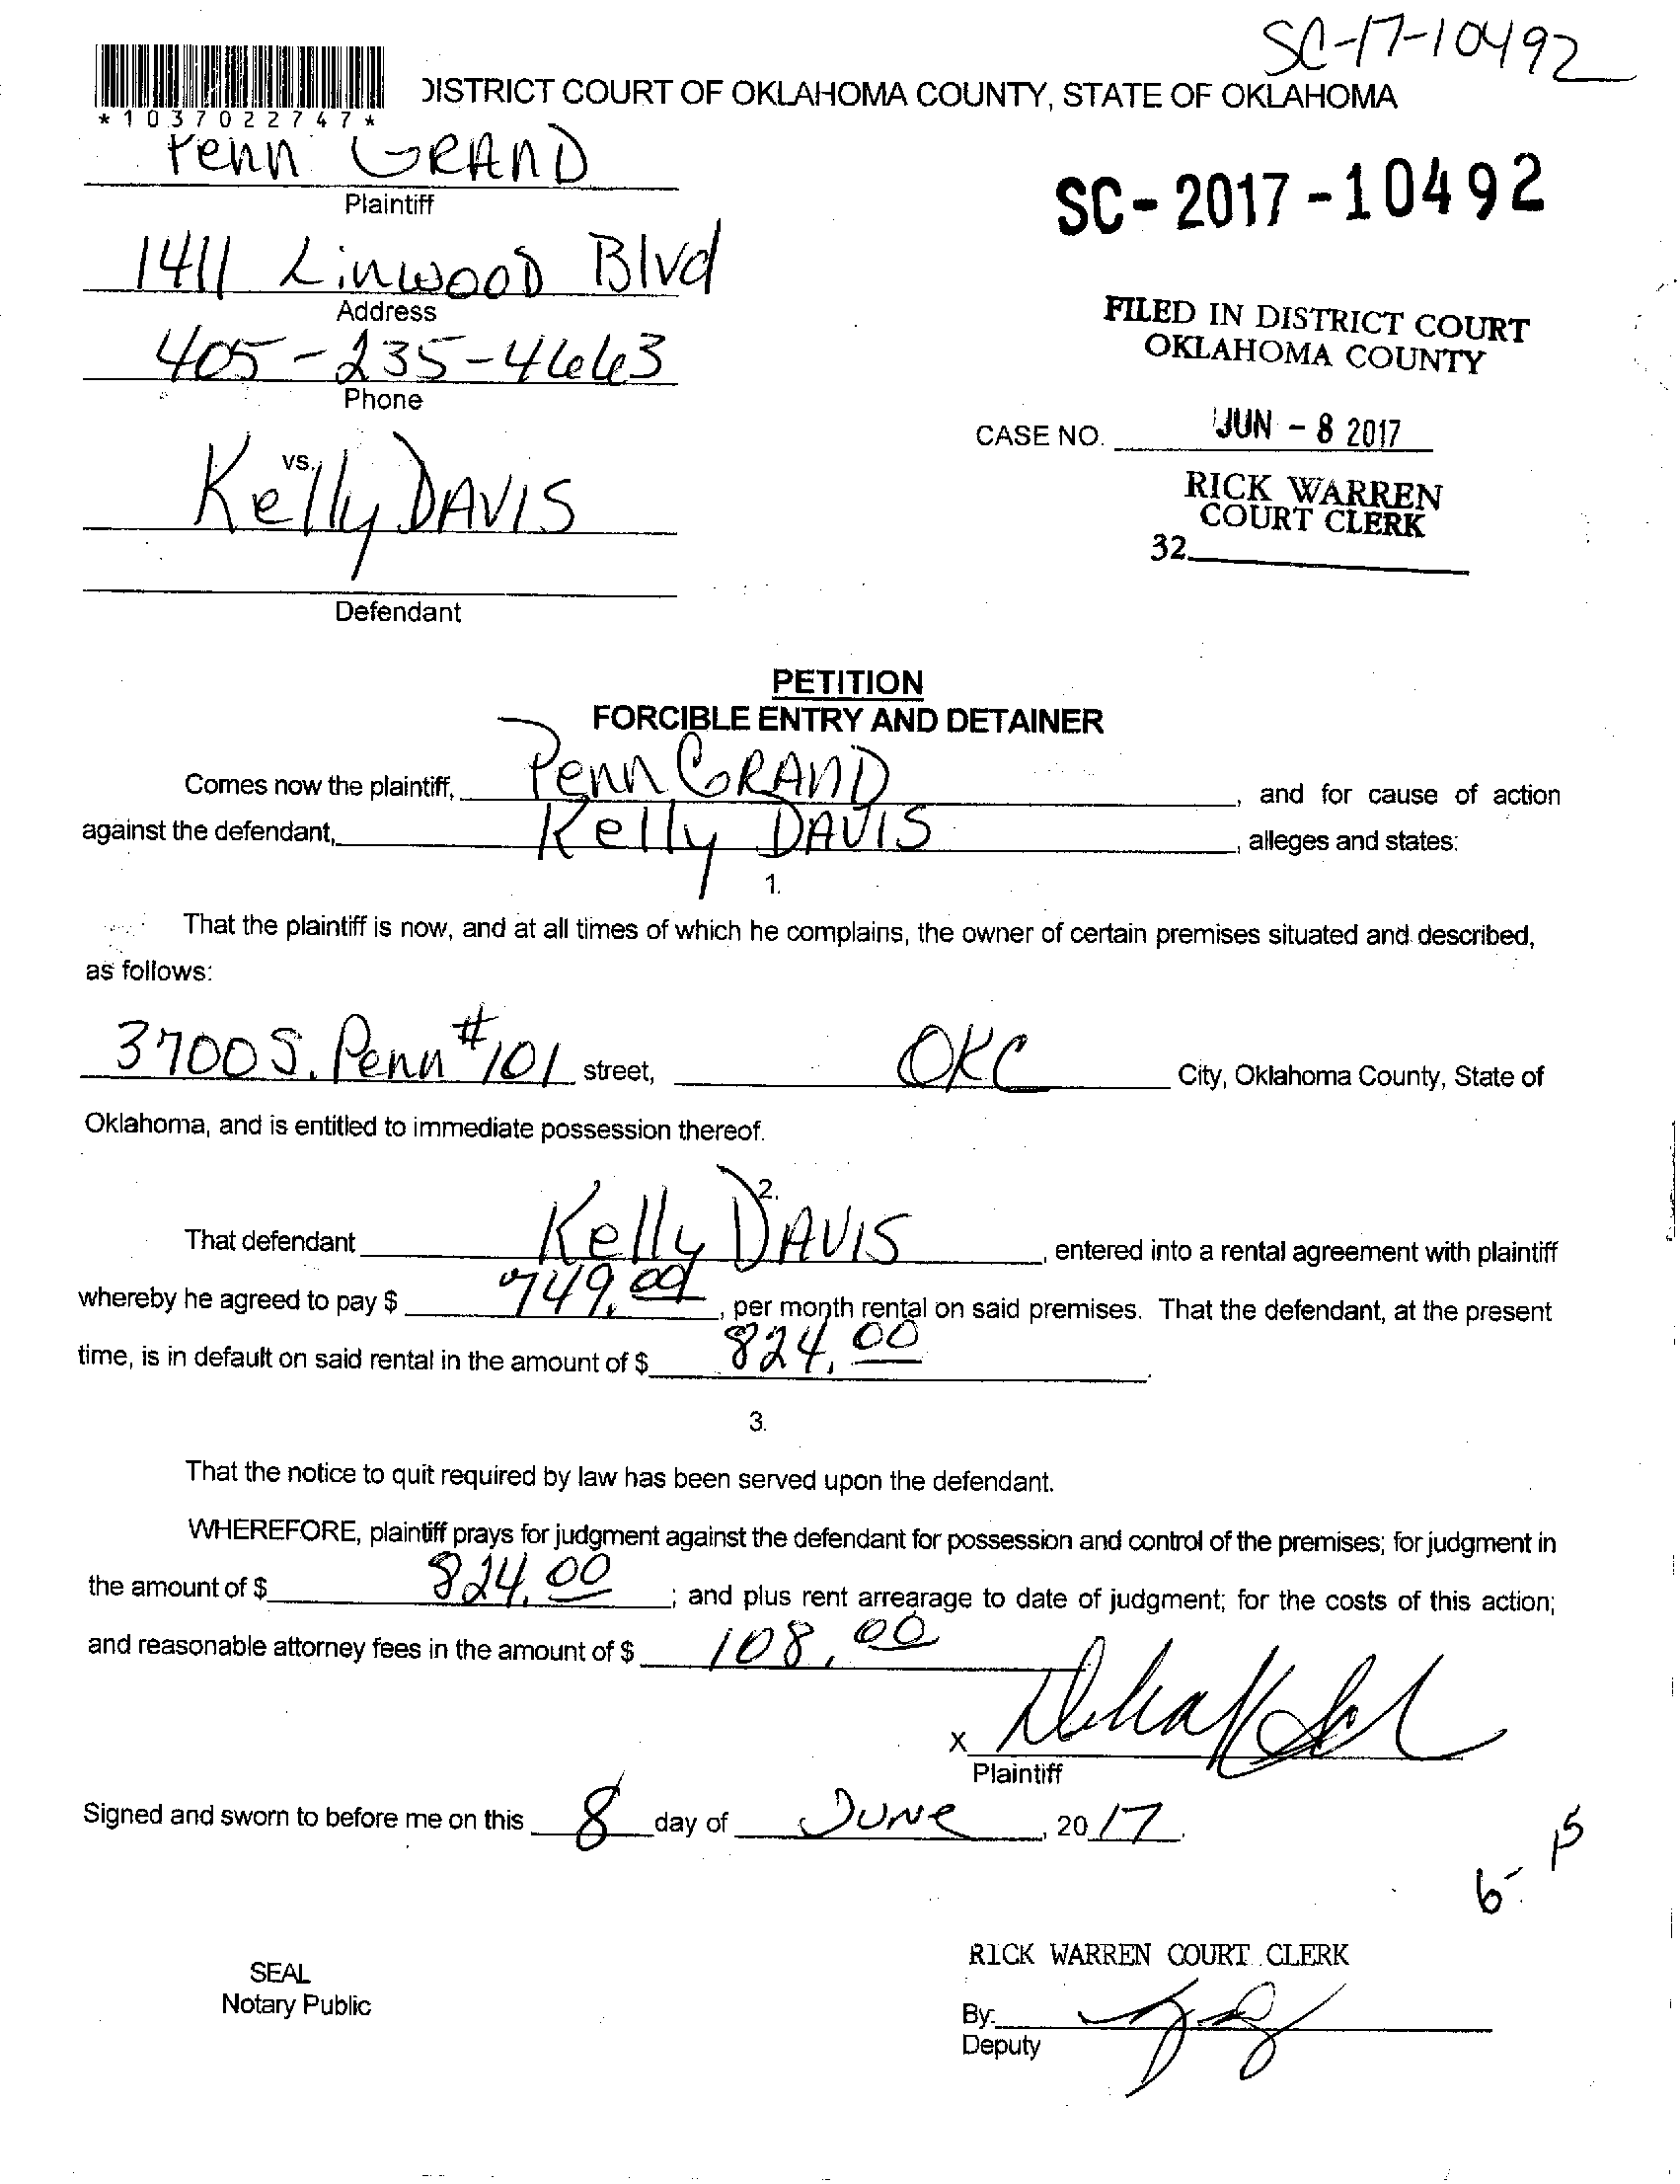 SC-17-10492
*1037022747*
DISTRICT COURT OF OKLAHOMA COUNTY, STATE OF OKLAHOMA
Penn GRAND
Plaintiff
SC-2017-10492
1411 LinwooD Blvd
Address
FILED IN DISTRICT COURT
OKLAHOMA COUNTY
405-235-4663
Phone
CASE NO. JUN - 8 2017
vs.
Kelly DAVIS
RICK WARREN
COURT CLERK
32
Defendant
PETITION
FORCIBLE ENTRY AND DETAINER
Comes now the plaintiff, Penn GRAND, and for cause of action
against the defendant, Kelly DAVIS, alleges and states:
1.
That the plaintiff is now, and at all times of which he complains, the owner of certain premises situated and described,
as follows:
3700 S. Penn #101 street, OKC City, Oklahoma County, State of
Oklahoma, and is entitled to immediate possession thereof.
2.
That defendant Kelly DAVIS, entered into a rental agreement with plaintiff
whereby he agreed to pay $ 749.00, per month rental on said premises. That the defendant, at the present
time, is in default on said rental in the amount of $ 824.00.
3.
That the notice to quit required by law has been served upon the defendant.
WHEREFORE, plaintiff prays for judgment against the defendant for possession and control of the premises; for judgment in
the amount of $ 824.00; and plus rent arrearage to date of judgment; for the costs of this action;
and reasonable attorney fees in the amount of $ 108.00
X
Plaintiff
Signed and sworn to before me on this 8 day of JUNe, 2017.
6-15
RICK WARREN COURT CLERK
SEAL
Notary Public
By:
Deputy